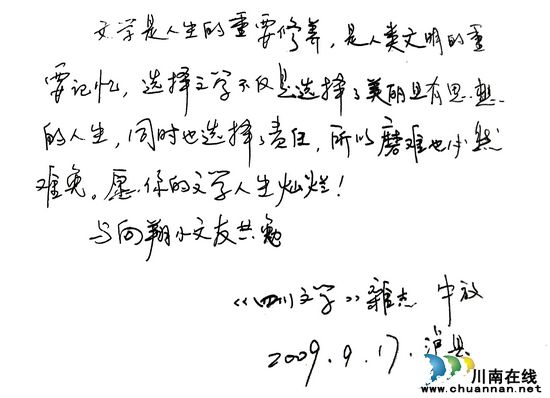 文学是人生的重要修养，是人类文明的重
要记忆，选择文学不仅是选择了美丽且有思想
的人生，同时也选择了责任，所以磨难也必然
难免。愿你的文学人生灿烂！
与向翔小文友共勉
《四川文学》雜志 牛放
2009.9.17.泸县
川南在线
www.chuannan.net